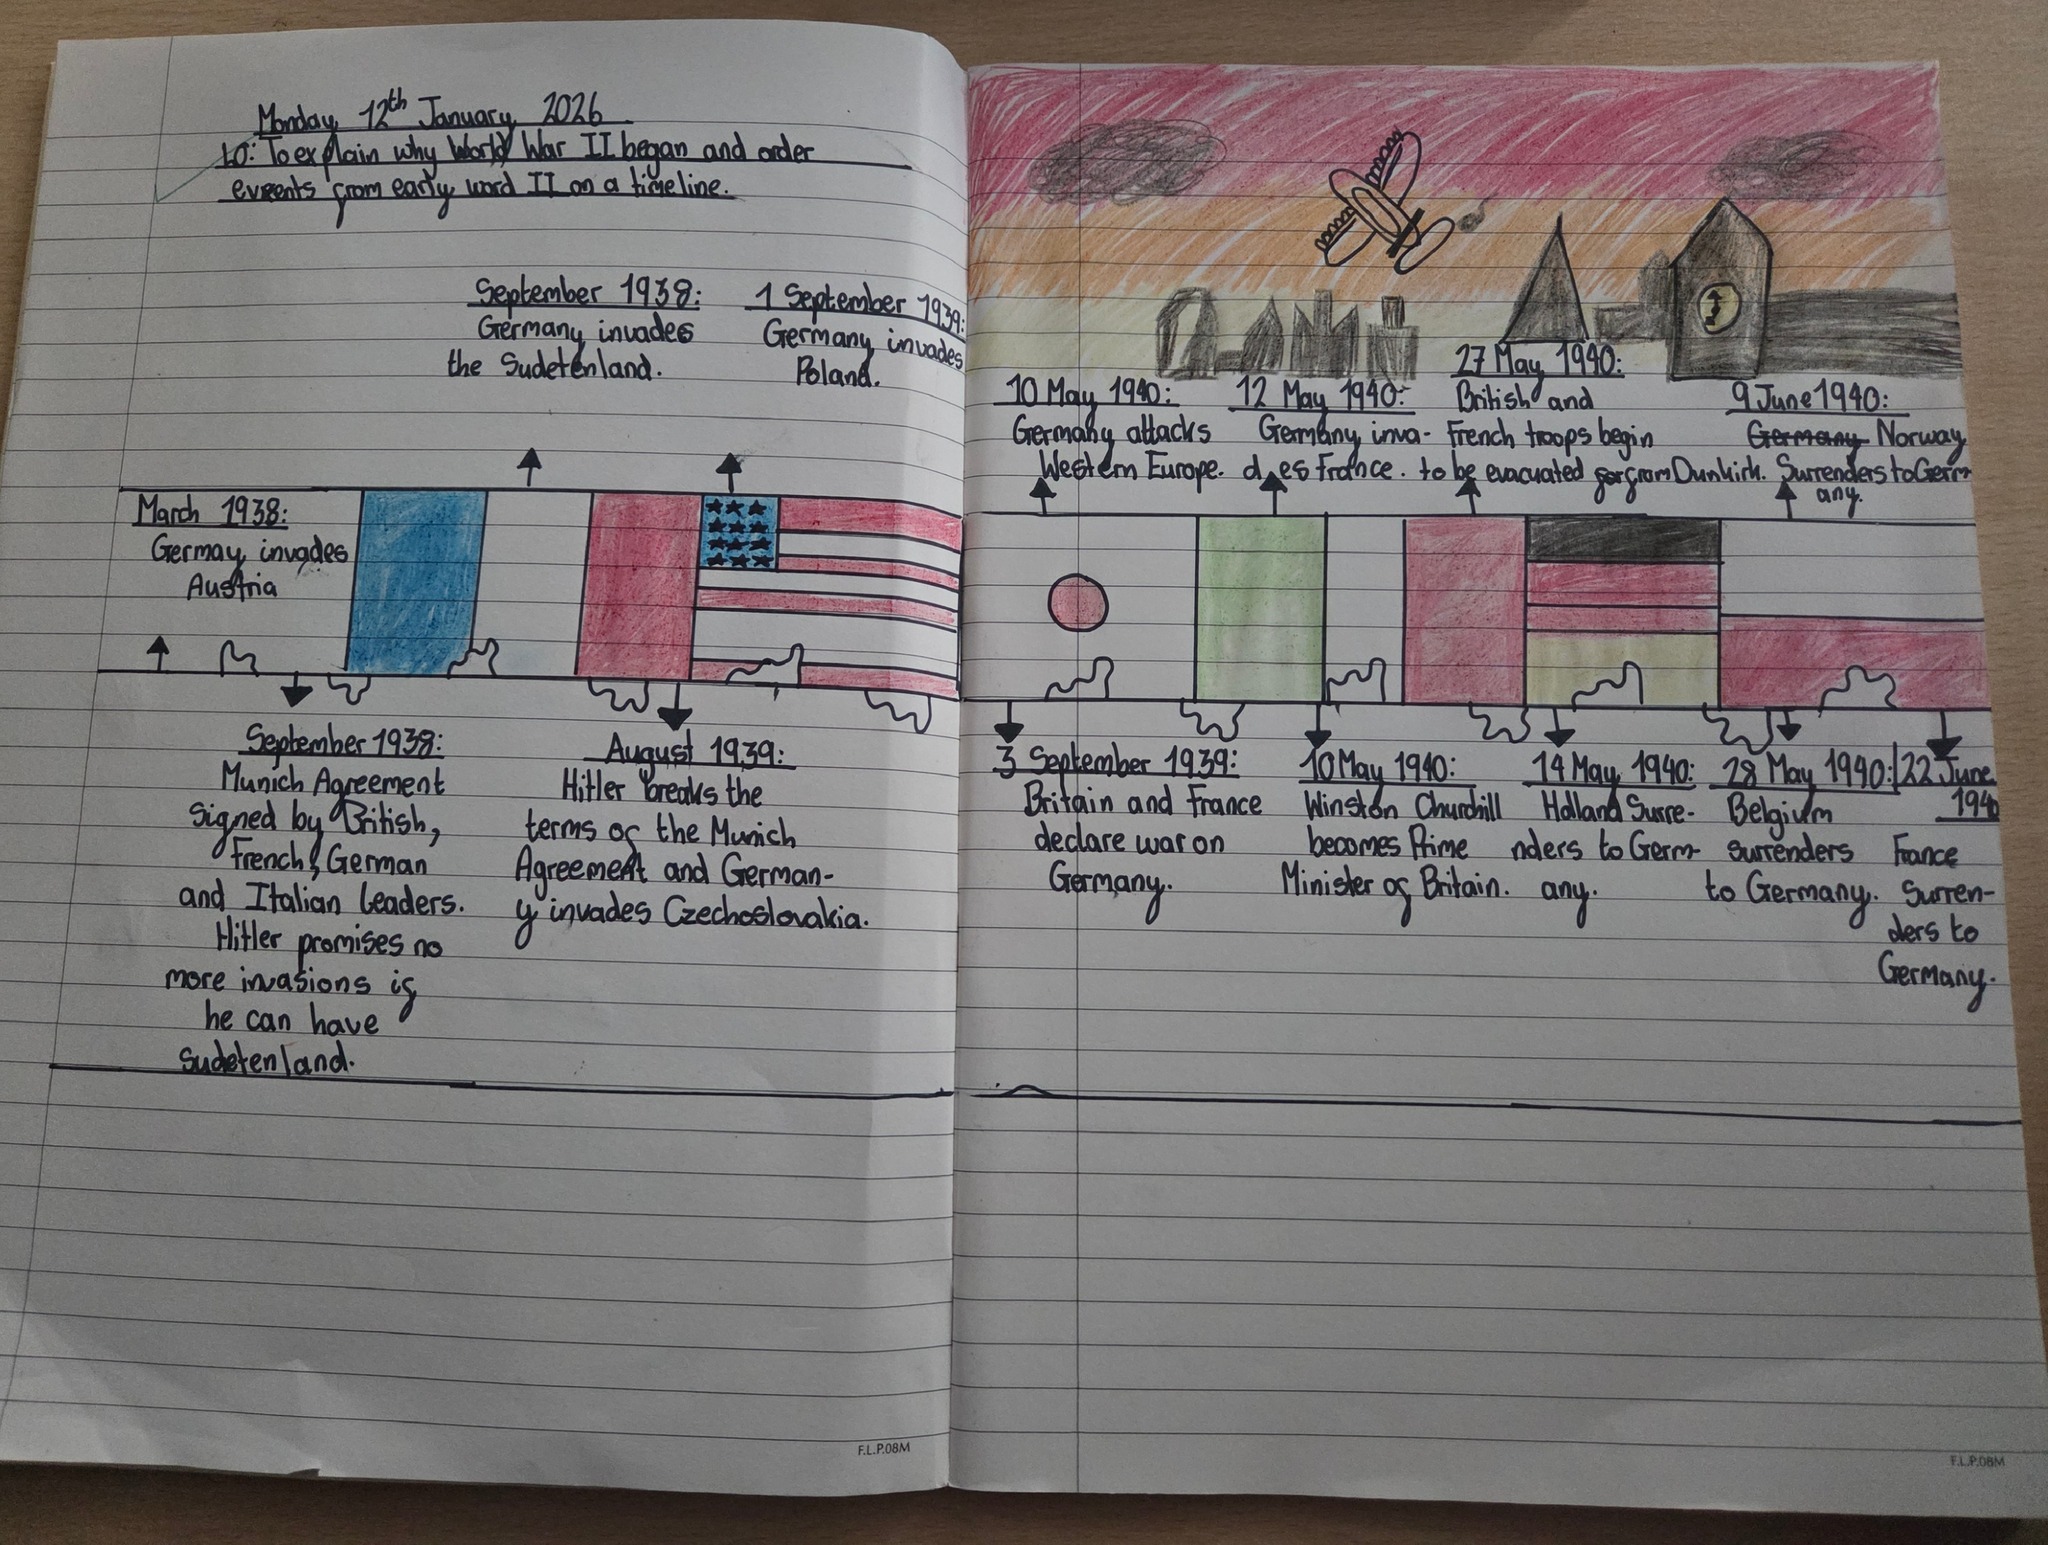 Monday 12th January 2026
LO: To explain why World War II began and order
events from early word II on a timeline.
September 1938:
Germany invades
the Sudetenland.
1 September 1939:
Germany invades
Poland.
March 1938:
Germay invades
Austria
September 1938:
Munich Agreement
signed by British,
French, German
and Italian leaders.
Hitler promises no
more invasions if
he can have
Sudetenland.
August 1939:
Hitler breaks the
terms of the Munich
Agreement and German-
y invades Czechoslovakia.
F.L.P.08M
10 May 1940:
Germany attacks
Western Europe.
12 May 1940:
Germany inva-
des France.
27 May 1940:
British and
French troops begin
to be evacuated from Dunkirk.
9 June 1940:
Germany Norway
Surrenders to Germ
any.
3 September 1939:
Britain and France
declare war on
Germany.
10 May 1940:
Winston Churchill
becomes Prime
Minister of Britain.
14 May 1940:
Holland Surre-
nders to Germ-
any.
28 May 1940:
Belgium
surrenders
to Germany.
22 June
1940
France
Surren-
ders to
Germany.
F.L.P.08M